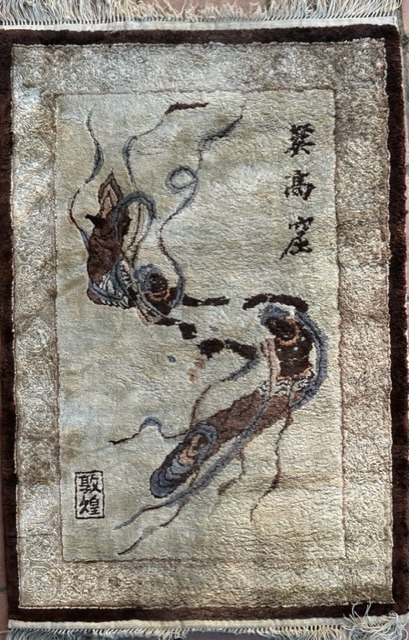 莫高窟
敦煌